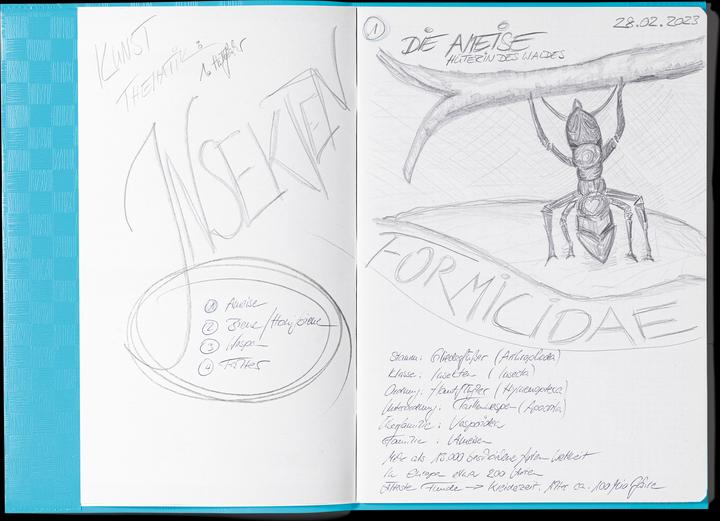 KUNST
THEMATIK:
INSEKTEN
1 Ameise
2 Biene/Honigbiene
3 Wespe
4
1
28.02.2023
DIE AMEISE
HÜTERIN DES WALDES
FORMICIDAE
Stamm: Gliederfüßer (Arthropoda)
Klasse: Insekten (Insecta)
Ordnung: Hautflügler (Hymenoptera)
Unterordnung: Taillenwespen (Apocrita)
Überfamilie: Vespoidea
Familie: Ameisen
Mehr als 13.000 beschriebene Arten weltweit
In Europa etwa 200 Arten
Älteste Funde → Kreidezeit. Alter ca. 100 Mio Jahre